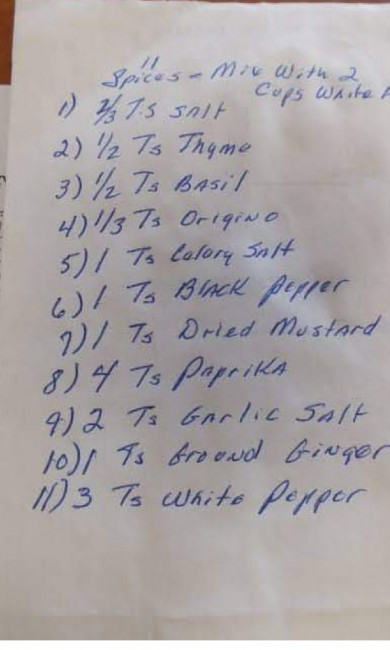 11
Spices - Mix With 2
Cups White
1) 2/3 TS SAlt
2) 1/2 Ts Thyme
3) 1/2 Ts BAsil
4) 1/3 Ts Origino
5) 1 Ts Celary SAlt
6) 1 Ts BlAck Pepper
7) 1 Ts Dried Mustard
8) 4 Ts PApriKA
9) 2 Ts GArlic SAlt
10) 1 Ts Ground Ginger
11) 3 Ts White Pepper